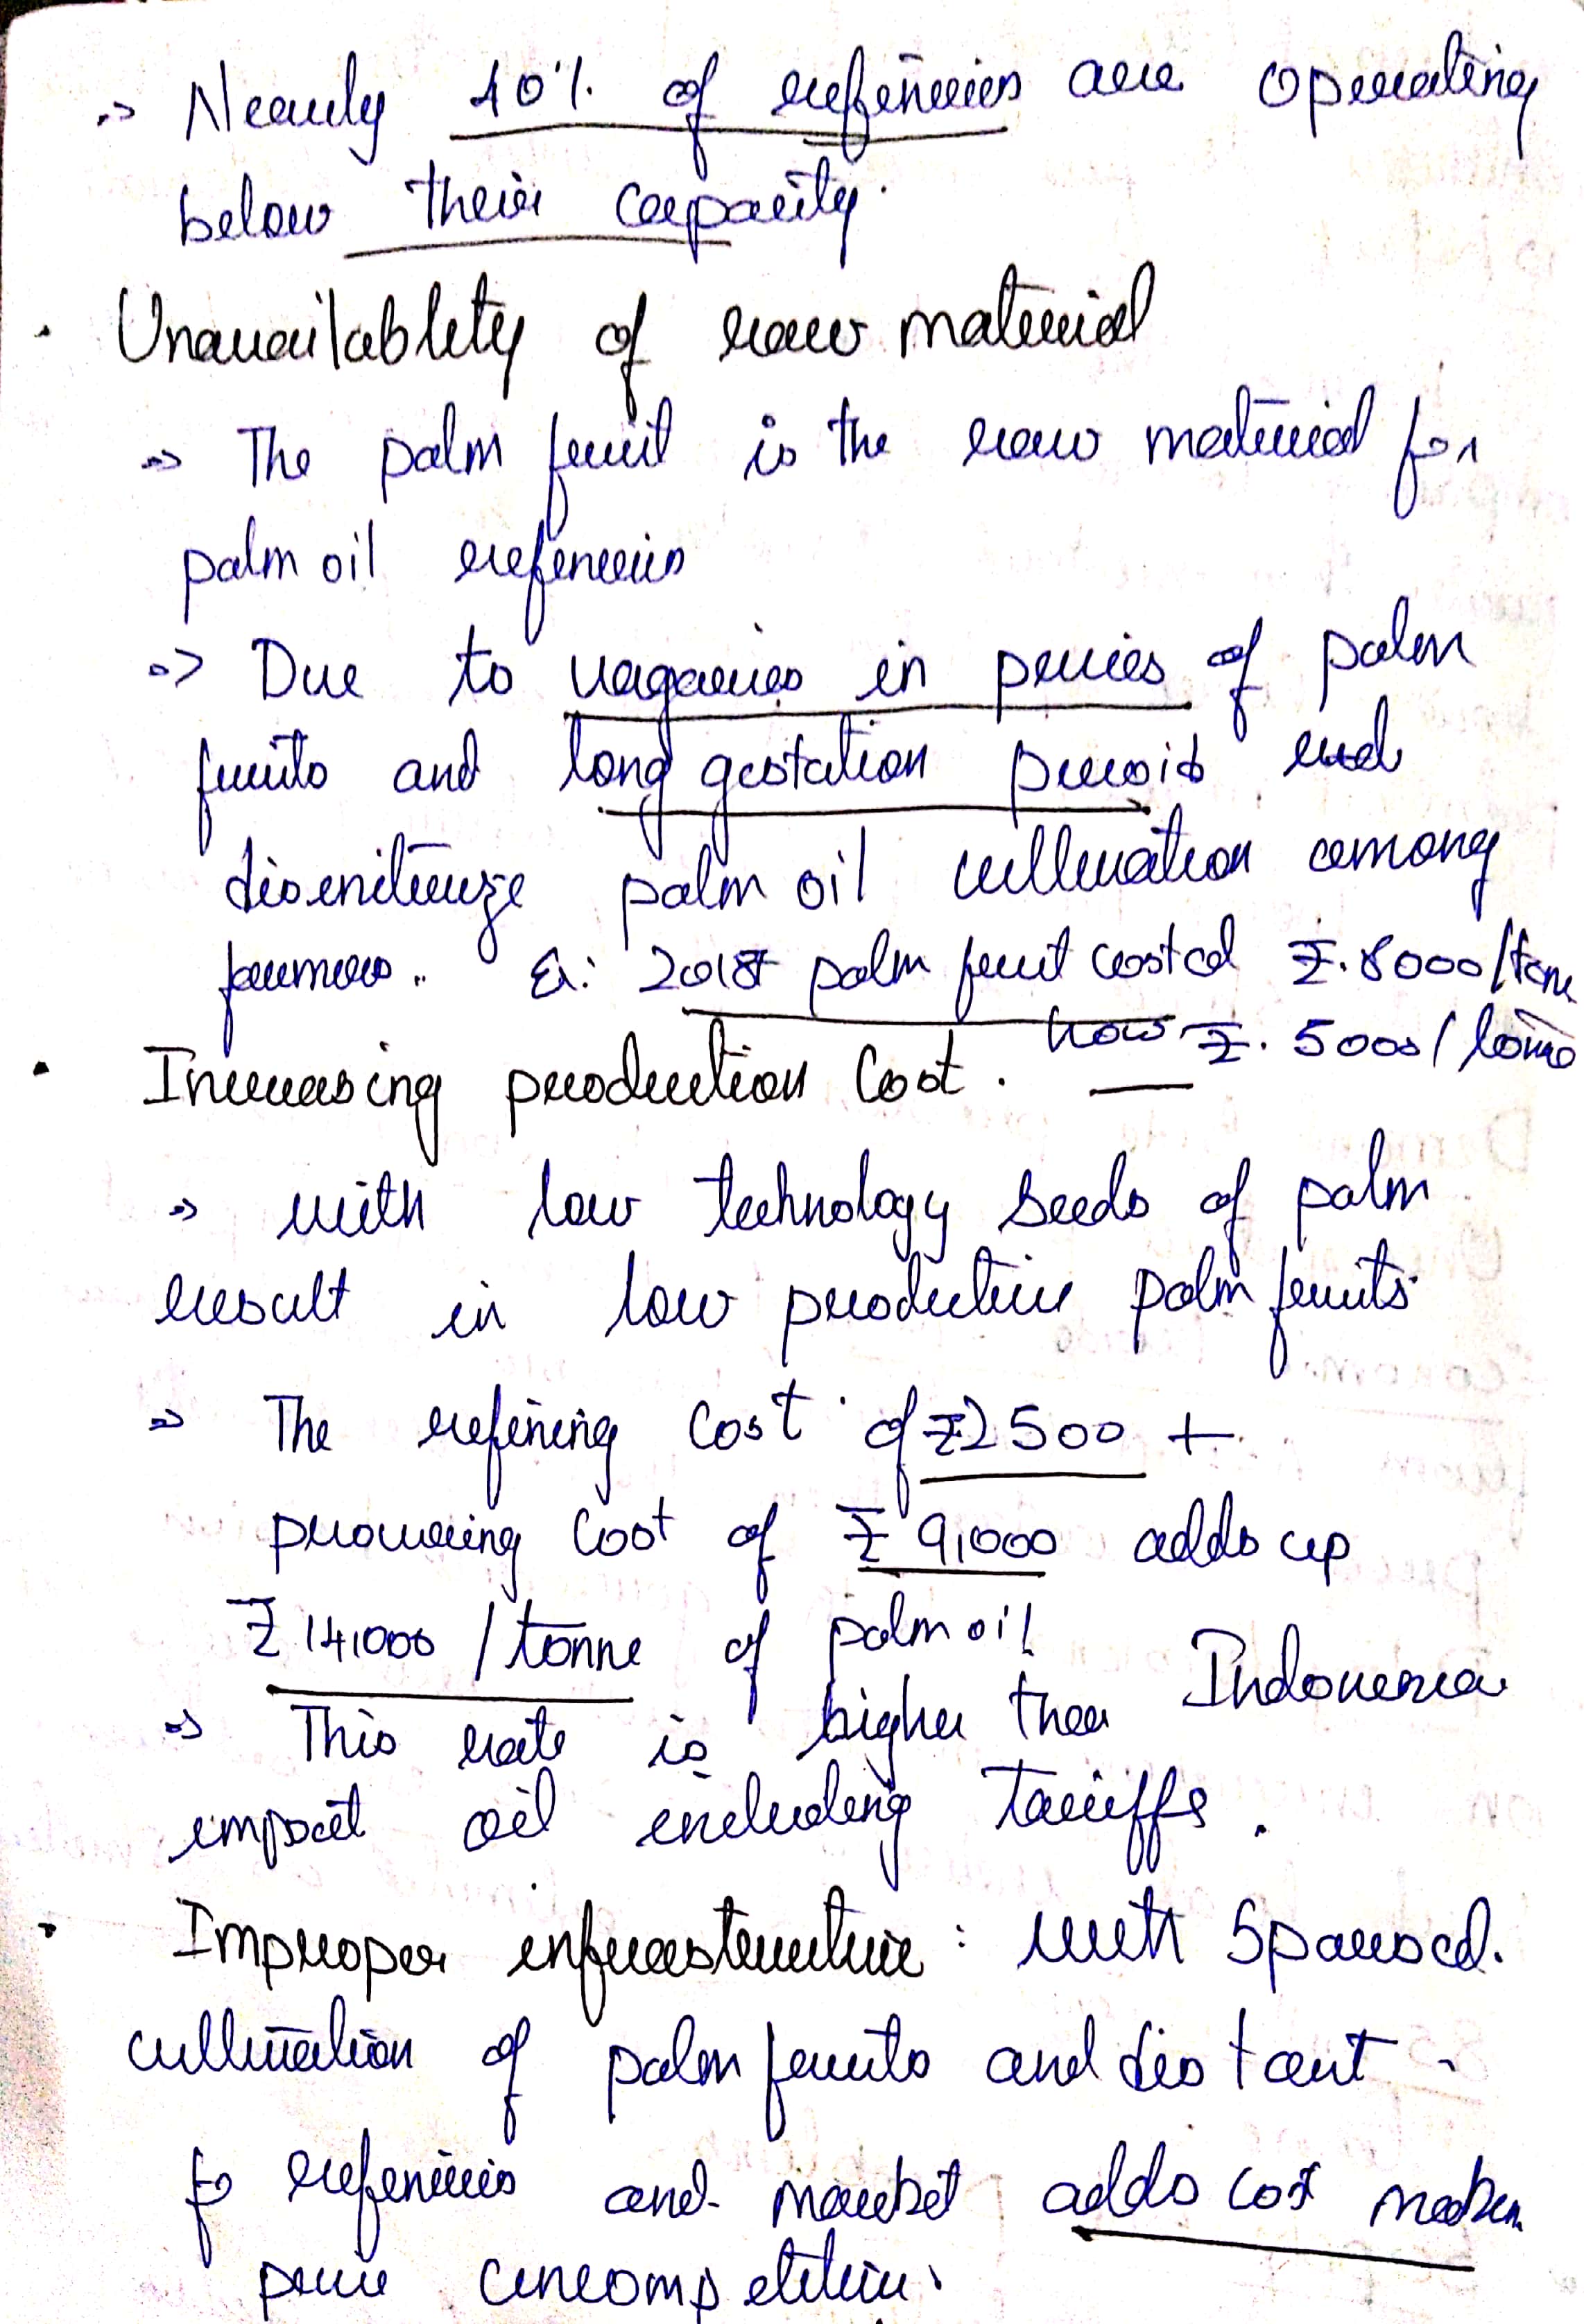 => Nearly 40% of refineries are operating
below their capacity.
• Unavailablity of raw material
=> The palm fruit is the raw material for
palm oil refineries
=> Due to vagaries in prices of palm
fruits and long gestation period
disincitivize palm oil cultivation among
farmers.. Ex: 2018 palm fruit costed ₹.8000/tone
now ₹. 5000/tonne
• Increasing production cost.
=> with low technology seeds of palm
result in low productive palm fruits
=> The refining cost of ₹2500 +
procuring cost of ₹ 9,000 adds up
₹ 14,000 /tonne of palm oil
=> This rate is higher than Indonesia
import oil including tariffs.
• Improper infrastructure: with sparsed
cultivation of palm fruits and distant
refineries and market adds cost
price uncompetitive.